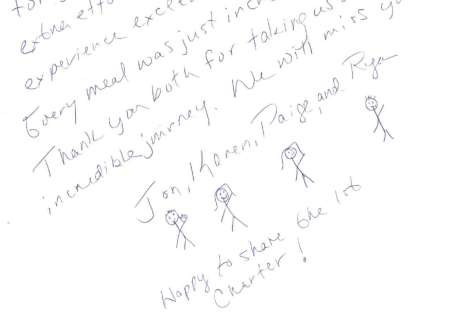 extra
experience
Every meal was just
Thank you both for taking us
incredible journey. We will miss
Jon, Karen, Paige, and Ryan
Happy to share the 1st
Charter!